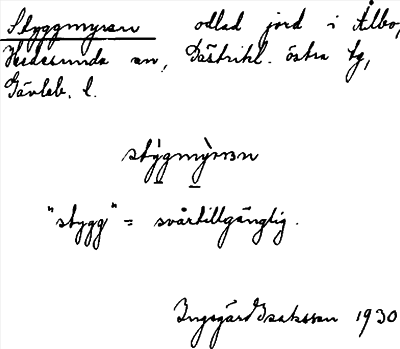 Styggmyran odlad jord i Ålbo,
Hedesunda sn, Gästrikl. östra tg,
Gävleb. l.
stýgmỳran
"stygg" = svårtillgänglig.
Ingegärd Isaksson 1930